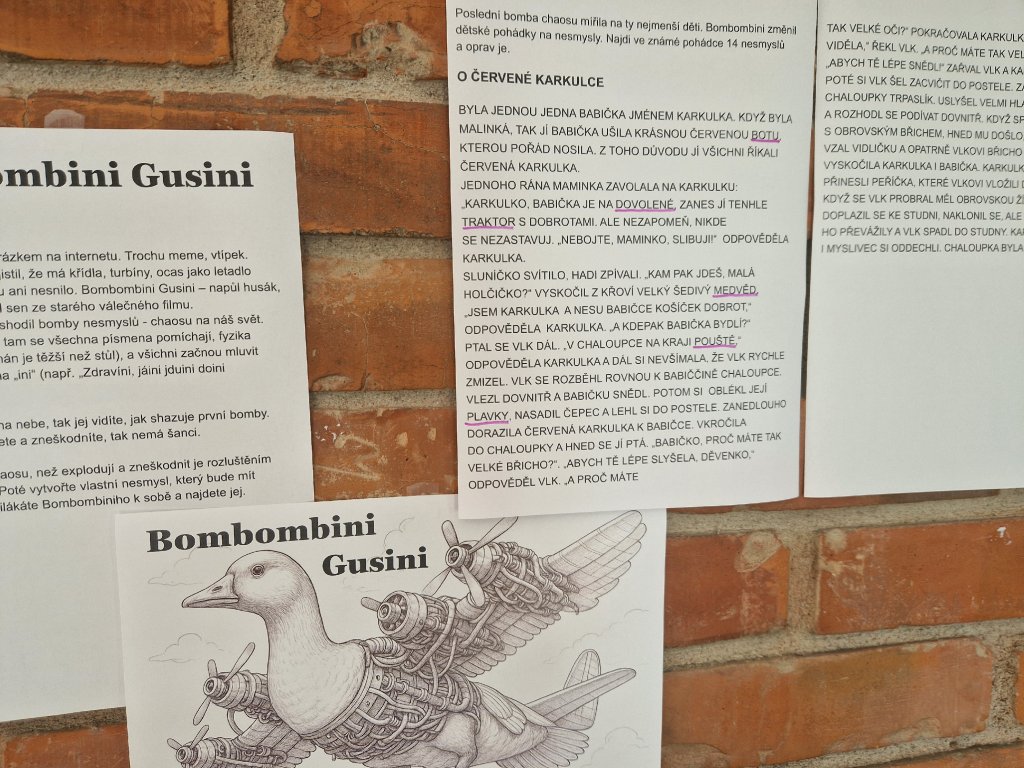 ombini Gusini
rázkem na internetu. Trochu meme, vtípek.
jistil, že má křídla, turbíny, ocas jako letadlo
u ani nesnilo. Bombombini Gusini – napůl husák,
l sen ze starého válečného filmu.
shodil bomby nesmyslů - chaosu na náš svět.
tam se všechna písmena pomíchají, fyzika
nán je těžší než stůl), a všichni začnou mluvit
na „ini“ (např. „Zdravíni, jáini jduini doini
na nebe, tak jej vidíte, jak shazuje první bomby.
ete a zneškodníte, tak nemá šanci.
aosu, než explodují a zneškodnit je rozluštěním
Poté vytvořte vlastní nesmysl, který bude mít
ilákáte Bombombiniho k sobě a najdete jej.
Bombombini
Gusini
Poslední bomba chaosu mířila na ty nejmenší děti. Bombombini změnil
dětské pohádky na nesmysly. Najdi ve známé pohádce 14 nesmyslů
a oprav je.
O ČERVENÉ KARKULCE
BYLA JEDNOU JEDNA BABIČKA JMÉNEM KARKULKA. KDYŽ BYLA
MALINKÁ, TAK JÍ BABIČKA UŠILA KRÁSNOU ČERVENOU BOTU,
KTEROU POŘÁD NOSILA. Z TOHO DŮVODU JÍ VŠICHNI ŘÍKALI
ČERVENÁ KARKULKA.
JEDNOHO RÁNA MAMINKA ZAVOLALA NA KARKULKU:
„KARKULKO, BABIČKA JE NA DOVOLENÉ, ZANES JÍ TENHLE
TRAKTOR S DOBROTAMI. ALE NEZAPOMEŇ, NIKDE
SE NEZASTAVUJ. „NEBOJTE, MAMINKO, SLIBUJI!“ ODPOVĚDĚLA
KARKULKA.
SLUNÍČKO SVÍTILO, HADI ZPÍVALI. „KAM PAK JDEŠ, MALÁ
HOLČIČKO?“ VYSKOČIL Z KŘOVÍ VELKÝ ŠEDIVÝ MEDVĚD.
„JSEM KARKULKA A NESU BABIČCE KOŠÍČEK DOBROT,“
ODPOVĚDĚLA KARKULKA. „A KDEPAK BABIČKA BYDLÍ?“
PTAL SE VLK DÁL. „V CHALOUPCE NA KRAJI POUŠTĚ,“
ODPOVĚDĚLA KARKULKA A DÁL SI NEVŠÍMALA, ŽE VLK RYCHLE
ZMIZEL. VLK SE ROZBĚHL ROVNOU K BABIČČINĚ CHALOUPCE.
VLEZL DOVNITŘ A BABIČKU SNĚDL. POTOM SI OBLÉKL JEJÍ
PLAVKY, NASADIL ČEPEC A LEHL SI DO POSTELE. ZANEDLOUHO
DORAZILA ČERVENÁ KARKULKA K BABIČCE. VKROČILA
DO CHALOUPKY A HNED SE JÍ PTÁ. „BABIČKO, PROČ MÁTE TAK
VELKÉ BŘICHO?“. „ABYCH TĚ LÉPE SLYŠELA, DĚVENKO,“
ODPOVĚDĚL VLK. „A PROČ MÁTE
TAK VELKÉ OČI?“ POKRAČOVALA KARKULK
VIDĚLA,“ ŘEKL VLK. „A PROČ MÁTE TAK VEL
„ABYCH TĚ LÉPE SNĚDL!“ ZAŘVAL VLK A KA
POTÉ SI VLK ŠEL ZACVIČIT DO POSTELE. ZA
CHALOUPKY TRPASLÍK. USLYŠEL VELMI HLA
A ROZHODL SE PODÍVAT DOVNITŘ. KDYŽ SP
S OBROVSKÝM BŘICHEM, HNED MU DOŠLO
VZAL VIDLIČKU A OPATRNĚ VLKOVI BŘICHO
VYSKOČILA KARKULKA I BABIČKA. KARKULK
PŘINESLI PEŘÍČKA, KTERÉ VLKOVI VLOŽILI D
KDYŽ SE VLK PROBRAL MĚL OBROVSKOU ŽÍ
DOPLAZIL SE KE STUDNI, NAKLONIL SE, ALE
HO PŘEVÁŽILY A VLK SPADL DO STUDNY. KAR
I MYSLIVEC SI ODDECHLI. CHALOUPKA BYLA